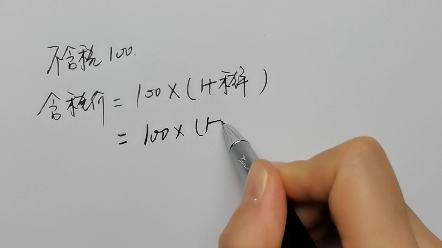 不含税100.
含税价=100×(1+税率)
=100×(1+